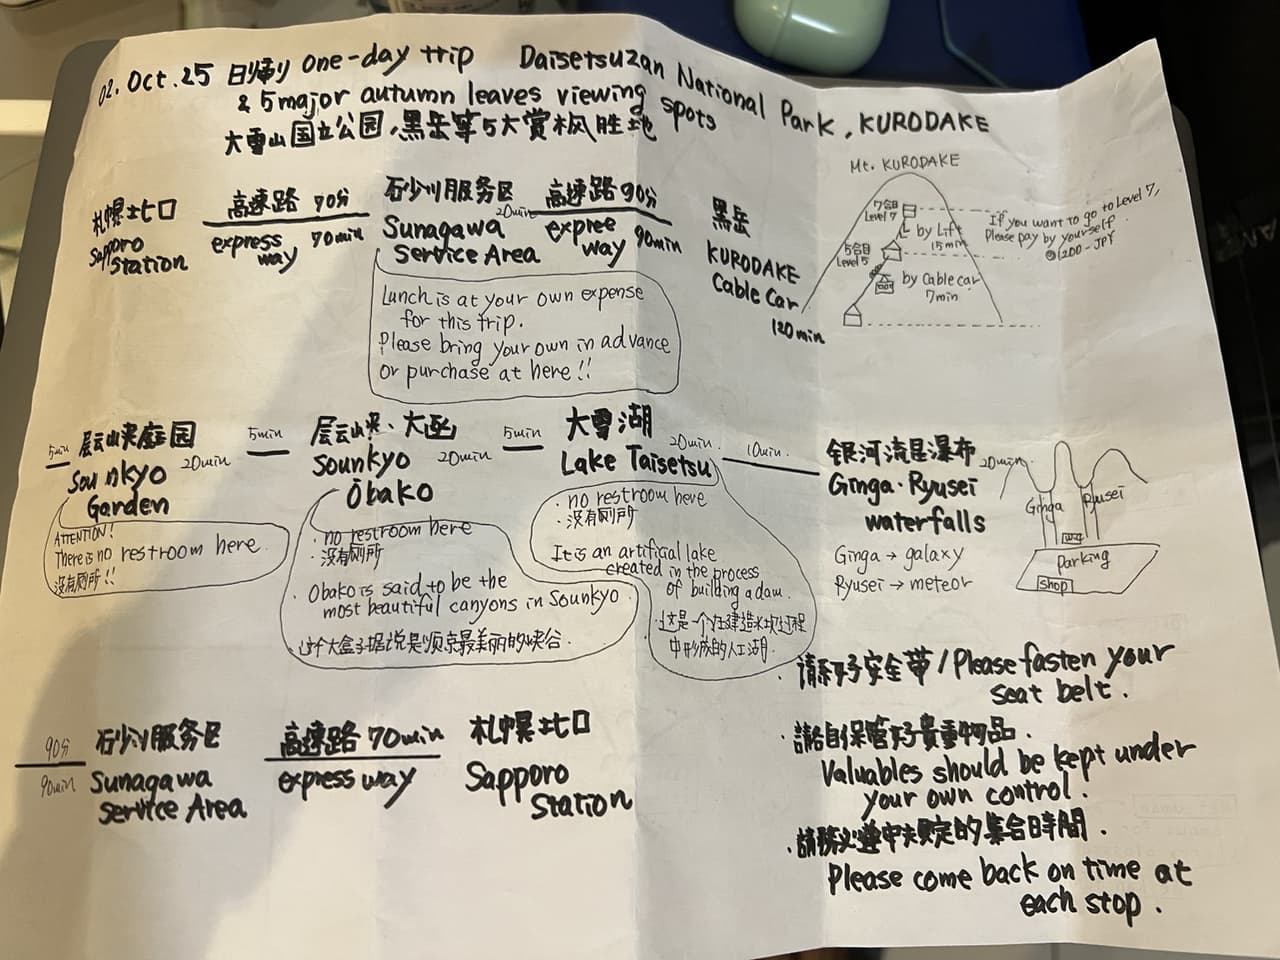 02. Oct. 25 日帰り one-day trip Daisetsuzan National Park, KURODAKE
& 5 major autumn leaves viewing spots
大雪山国立公园,黑岳等5大赏枫胜地
札幌北口
Sapporo Station
高速路 70分
express way 70min
石少川服务区 20min
Sunagawa Service Area
高速路 90分
expree way 90min
黑岳
KURODAKE
Cable Car
120 min
Lunch is at your own expense
for this trip.
Please bring your own in advance
or purchase at here!!
Mt. KURODAKE
7合目
Level 7
by Lift
15min
5合目
Level 5
by Cable car
7min
If you want to go to Level 7,
Please pay by yourself
1200-JPY
5min
层云峡庭园
Sounkyo 20min
Garden
ATTENTION!
There is no restroom here.
没有厕所!!
5min
层云峡、大函
Sounkyo 20min
Ōbako
· no restroom here
· 没有厕所
· Obako is said to be the
most beautiful canyons in Sounkyo.
5min
大雪湖
Lake Taisetsu 20min.
· no restroom here
· 没有厕所
It is an artificial lake
created in the process
of building a dam.
中形成的人工湖.
10min.
银河流星瀑布 20min
Ginga·Ryusei
waterfalls
Ginga → galaxy
Ryusei → meteor
Ginga
Ryusei
WC
Parking
Shop
· 请系好安全带/Please fasten your
seat belt.
· 請自保管好貴重物品.
Valuables should be kept under
your own control.
· 請務必遵守規定的集合時間.
Please come back on time at
each stop.
90分
90min
石少川服务区
Sunagawa
Service Area
高速路 70min
express way
札幌北口
Sapporo
Station